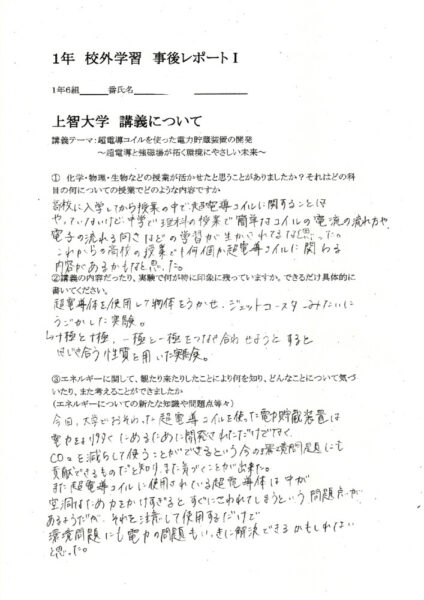 1年 校外学習 事後レポートⅠ
1年6組＿＿＿番氏名
上智大学 講義について
講義テーマ：超電導コイルを使った電力貯蔵装置の開発
～超電導と強磁場が拓く環境にやさしい未来～
① 化学・物理・生物などの授業が活かせたと思うことがありましたか？それはどの科
目の何についての授業でどのような内容ですか
高校に入学してから授業の中で超電導コイルに関することは
やっていないけど、中学で理科の授業で簡単なコイルの電流の流れ方や、
電子の流れる向きなどの学習が生かされてるなと思った。
これからの高校の授業でも何個か超電導コイルに関わる
内容があるかもなと思った。
②講義の内容だったり、実験で何が特に印象に残っていますか。できるだけ具体的に
書いてください。
超電導体を使用して物体をうかせ、ジェットコースターみたいに
うごかした実験。
↳+極と+極、-極と-極をつなぎ合わせようとすると
はじき合う性質を用いた実験。
③エネルギーに関して、観たり来たりしたことにより何を知り、どんなことについて気づ
いたり、また考えることができましたか
（エネルギーについての新たな知識や問題点等々）
今回、大学でおそわった超電導コイルを使った電力貯蔵装置は
電力をよりすぐにためるために開発されただけでなく、
CO₂を減らして使うことができるという今の環境問題にも
貢献できるものだと知り、また気づくことが出来た。
また超電導コイルに使用されている超電導体は中が
空洞なため力をかけすぎるとすぐにこわれてしまうという問題点が
あるようだが、それを注意して使用するだけで
環境問題にも電力の問題もいっきに解決できるかもしれない
と思った。